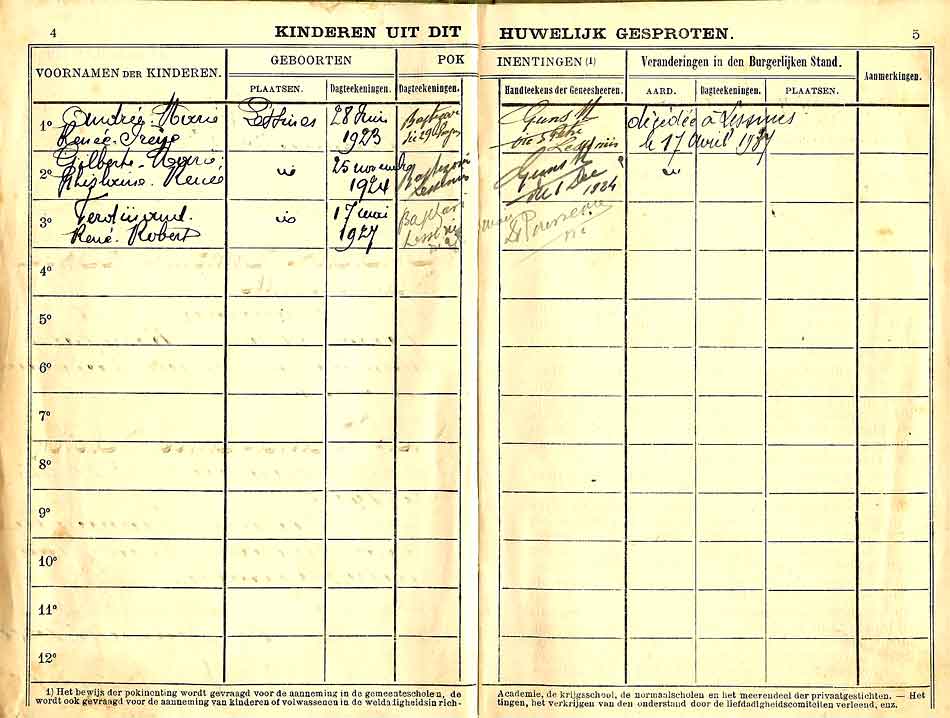 4
KINDEREN UIT DIT
HUWELIJK GESPROTEN.
5
VOORNAMEN DER KINDEREN.
GEBOORTEN
POK
INENTINGEN (1)
Veranderingen in den Burgerlijken Stand.
Aanmerkingen.
PLAATSEN.
Dagteekeningen.
Dagteekeningen.
Handteekens der Geneesheeren.
AARD.
Dagteekeningen.
PLAATSEN.
1°
Andrée. Marie
Renée. Irène
Lessines
28 Juin
1923
décédée à Lessines
le 17 Avril 1937
2°
Gilberte. Marie.
Ghislaine. Renée
25 novembre
1924
Lessines
1 Dec
1924
3°
Ferdinand.
René. Robert
17 mai
1927
4°
5°
6°
7°
8°
9°
10°
11°
12°
1) Het bewijs der pokinenting wordt gevraagd voor de aanneming in de gemeentescholen, de
wordt ook gevraagd voor de aanneming van kinderen of volwassenen in de weldadigheidsin rich-
Academie, de krijgsschool, de normaalscholen en het meerendeel der privaatgestichten. — Het
tingen, het verkrijgen van den onderstand door de liefdadigheidscomiteiten verleend, enz.